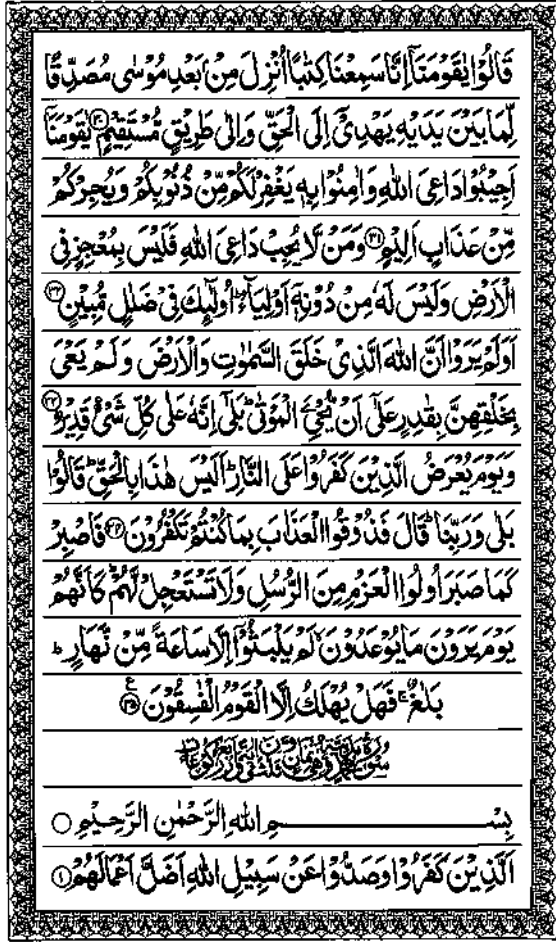 قَالُوْا یٰقَوْمَنَاۤ اِنَّا سَمِعْنَا كِتٰبًا اُنْزِلَ مِنْۢ بَعْدِ مُوْسٰى مُصَدِّقًا
لِّمَا بَیْنَ یَدَیْهِ یَهْدِیْۤ اِلَى الْحَقِّ وَاِلٰى طَرِیْقٍ مُّسْتَقِیْمٍ ﴿۳۰﴾ یٰقَوْمَنَاۤ
اَجِیْبُوْا دَاعِیَ اللّٰهِ وَاٰمِنُوْا بِهٖ یَغْفِرْ لَكُمْ مِّنْ ذُنُوْبِكُمْ وَیُجِرْكُمْ
مِّنْ عَذَابٍ اَلِیْمٍ ﴿۳۱﴾ وَمَنْ لَّا یُجِبْ دَاعِیَ اللّٰهِ فَلَیْسَ بِمُعْجِزٍ فِی
الْاَرْضِ وَلَیْسَ لَهٗ مِنْ دُوْنِهٖۤ اَوْلِیَآءُ ؕ اُولٰٓئِكَ فِیْ ضَلٰلٍ مُّبِیْنٍ ﴿۳۲﴾
اَوَلَمْ یَرَوْا اَنَّ اللّٰهَ الَّذِیْ خَلَقَ السَّمٰوٰتِ وَالْاَرْضَ وَلَمْ یَعْیَ
بِخَلْقِهِنَّ بِقٰدِرٍ عَلٰۤى اَنْ یُّحْیِ الْمَوْتٰى ؕ بَلٰۤى اِنَّهٗ عَلٰى كُلِّ شَیْءٍ قَدِیْرٌ ﴿۳۳﴾
وَیَوْمَ یُعْرَضُ الَّذِیْنَ كَفَرُوْا عَلَى النَّارِ ؕ اَلَیْسَ هٰذَا بِالْحَقِّ ؕ قَالُوْا
بَلٰى وَرَبِّنَا ؕ قَالَ فَذُوْقُوا الْعَذَابَ بِمَا كُنْتُمْ تَكْفُرُوْنَ ﴿۳۴﴾ فَاصْبِرْ
كَمَا صَبَرَ اُولُوا الْعَزْمِ مِنَ الرُّسُلِ وَلَا تَسْتَعْجِلْ لَّهُمْ ؕ كَاَنَّهُمْ
یَوْمَ یَرَوْنَ مَا یُوْعَدُوْنَ ۙ لَمْ یَلْبَثُوْۤا اِلَّا سَاعَةً مِّنْ نَّهَارٍ ؕ
بَلٰغٌ ۚ فَهَلْ یُهْلَكُ اِلَّا الْقَوْمُ الْفٰسِقُوْنَ ﴿۳۵﴾ ع
بِسْمِ اللّٰهِ الرَّحْمٰنِ الرَّحِیْمِ ○
اَلَّذِیْنَ كَفَرُوْا وَصَدُّوْا عَنْ سَبِیْلِ اللّٰهِ اَضَلَّ اَعْمَالَهُمْ ﴿۱﴾